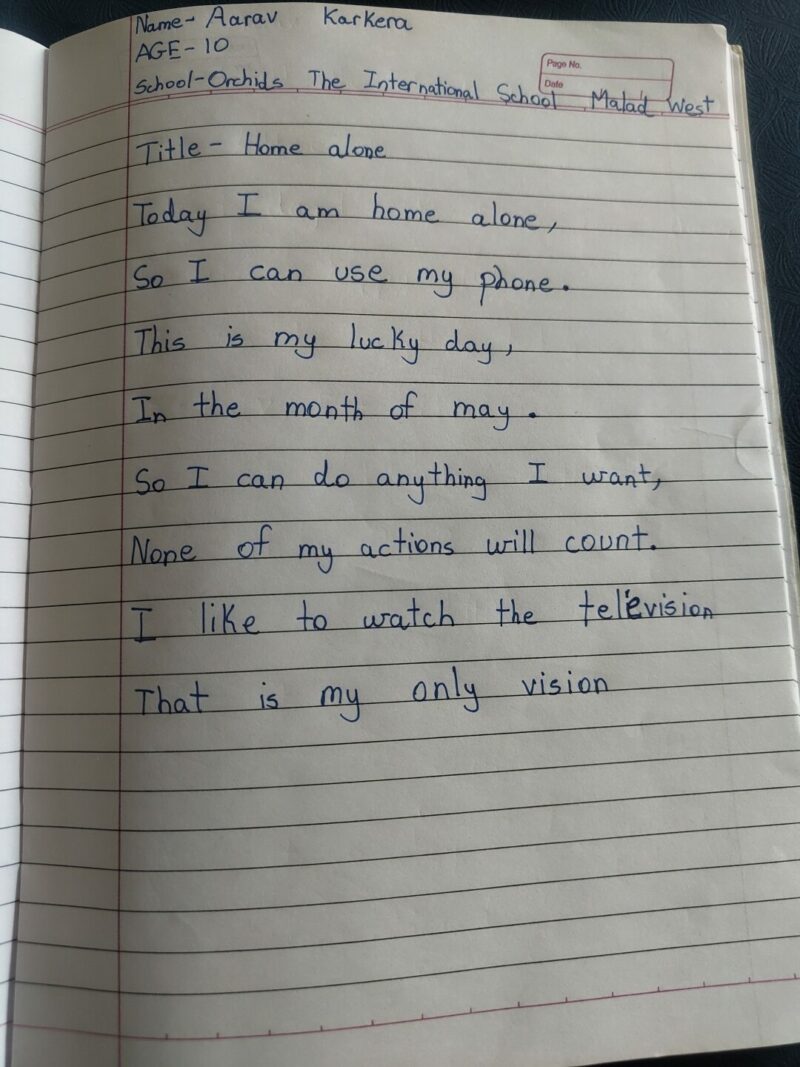 Name- Aarav Karkera
AGE-10
Page No.
Date
School-Orchids The International School Malad West
Title- Home alone
Today I am home alone,
So I can use my phone.
This is my lucky day,
In the month of may.
So I can do anything I want,
None of my actions will count.
I like to watch the television
That is my only vision